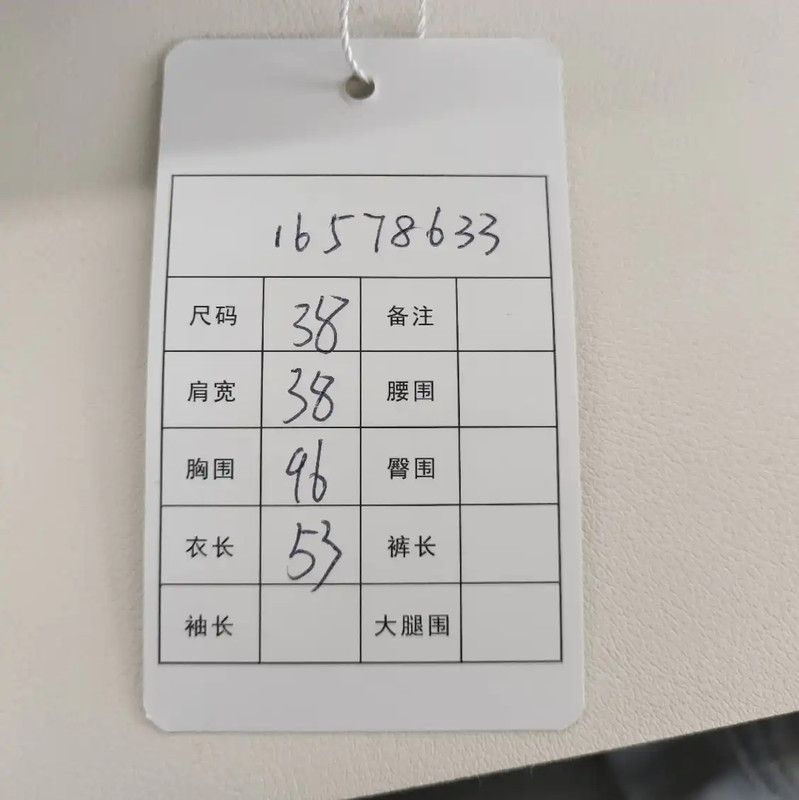 16578633
尺码 38 备注
肩宽 38 腰围
胸围 96 臀围
衣长 53 裤长
袖长 大腿围